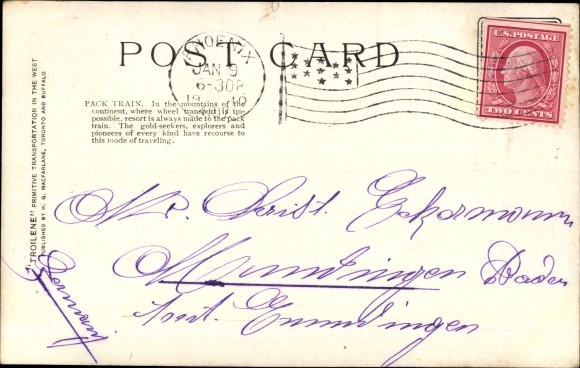 POST CARD
PHOENIX
JAN 9
6-30P
19
U.S. POSTAGE
TWO CENTS
PACK TRAIN. In the mountains of the
continent, where wheel transport is im-
possible, resort is always made to the pack
train. The gold-seekers, explorers and
pioneers of every kind have recourse to
this mode of traveling.
"TROILENE" PRIMITIVE TRANSPORTATION IN THE WEST
PUBLISHED BY W. G. MACFARLANE, TORONTO AND BUFFALO
Mr. Christ. Eckermann
Mundingen Baden
Amt. Emmendingen
Germany